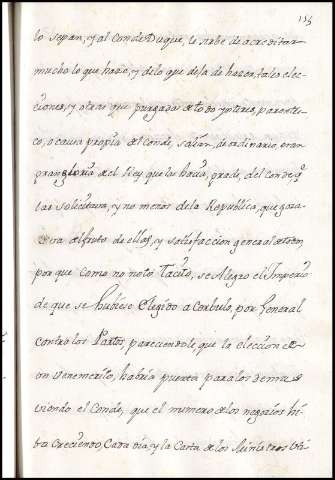 155
lo sepan, y al Conde Duque, le habe de acreditar
mucho lo que hacie, y de lo que deja de hacer, tales elec-
ciones, y otras que purgadas de todo ynteres, parentes-
co, o causa propia del Conde, salian, de ordinario, eran
gran gloria del Rey que las hacia, grade, del Conde q
las solicitava, y no menor de la Republica, que goza-
va del fruto de ellas, y satisfaccion general
por que como no noto Tacito, se Alegro el Imperio
de que se hubiese Elegido a Corbulo, por General
contra los Partos, pareciendole, que la eleccion de
un benemerito, habria puerta para los demas
viendo el Conde, que el numero de los negocios hi-
ba Creciendo, Cada dia, y la Carta de los Ministros